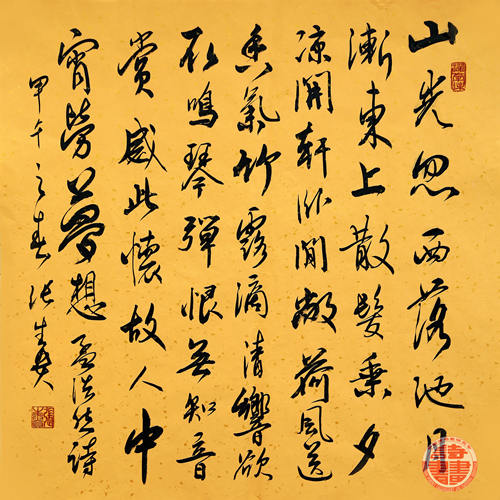 山光忽西落池月
漸東上散髮乘夕
涼開軒卧閒敞荷風送
香氣竹露滴清響欲
取鳴琴彈恨無知音
賞感此懷故人中
宵勞夢想孟浩然詩
甲午之春張